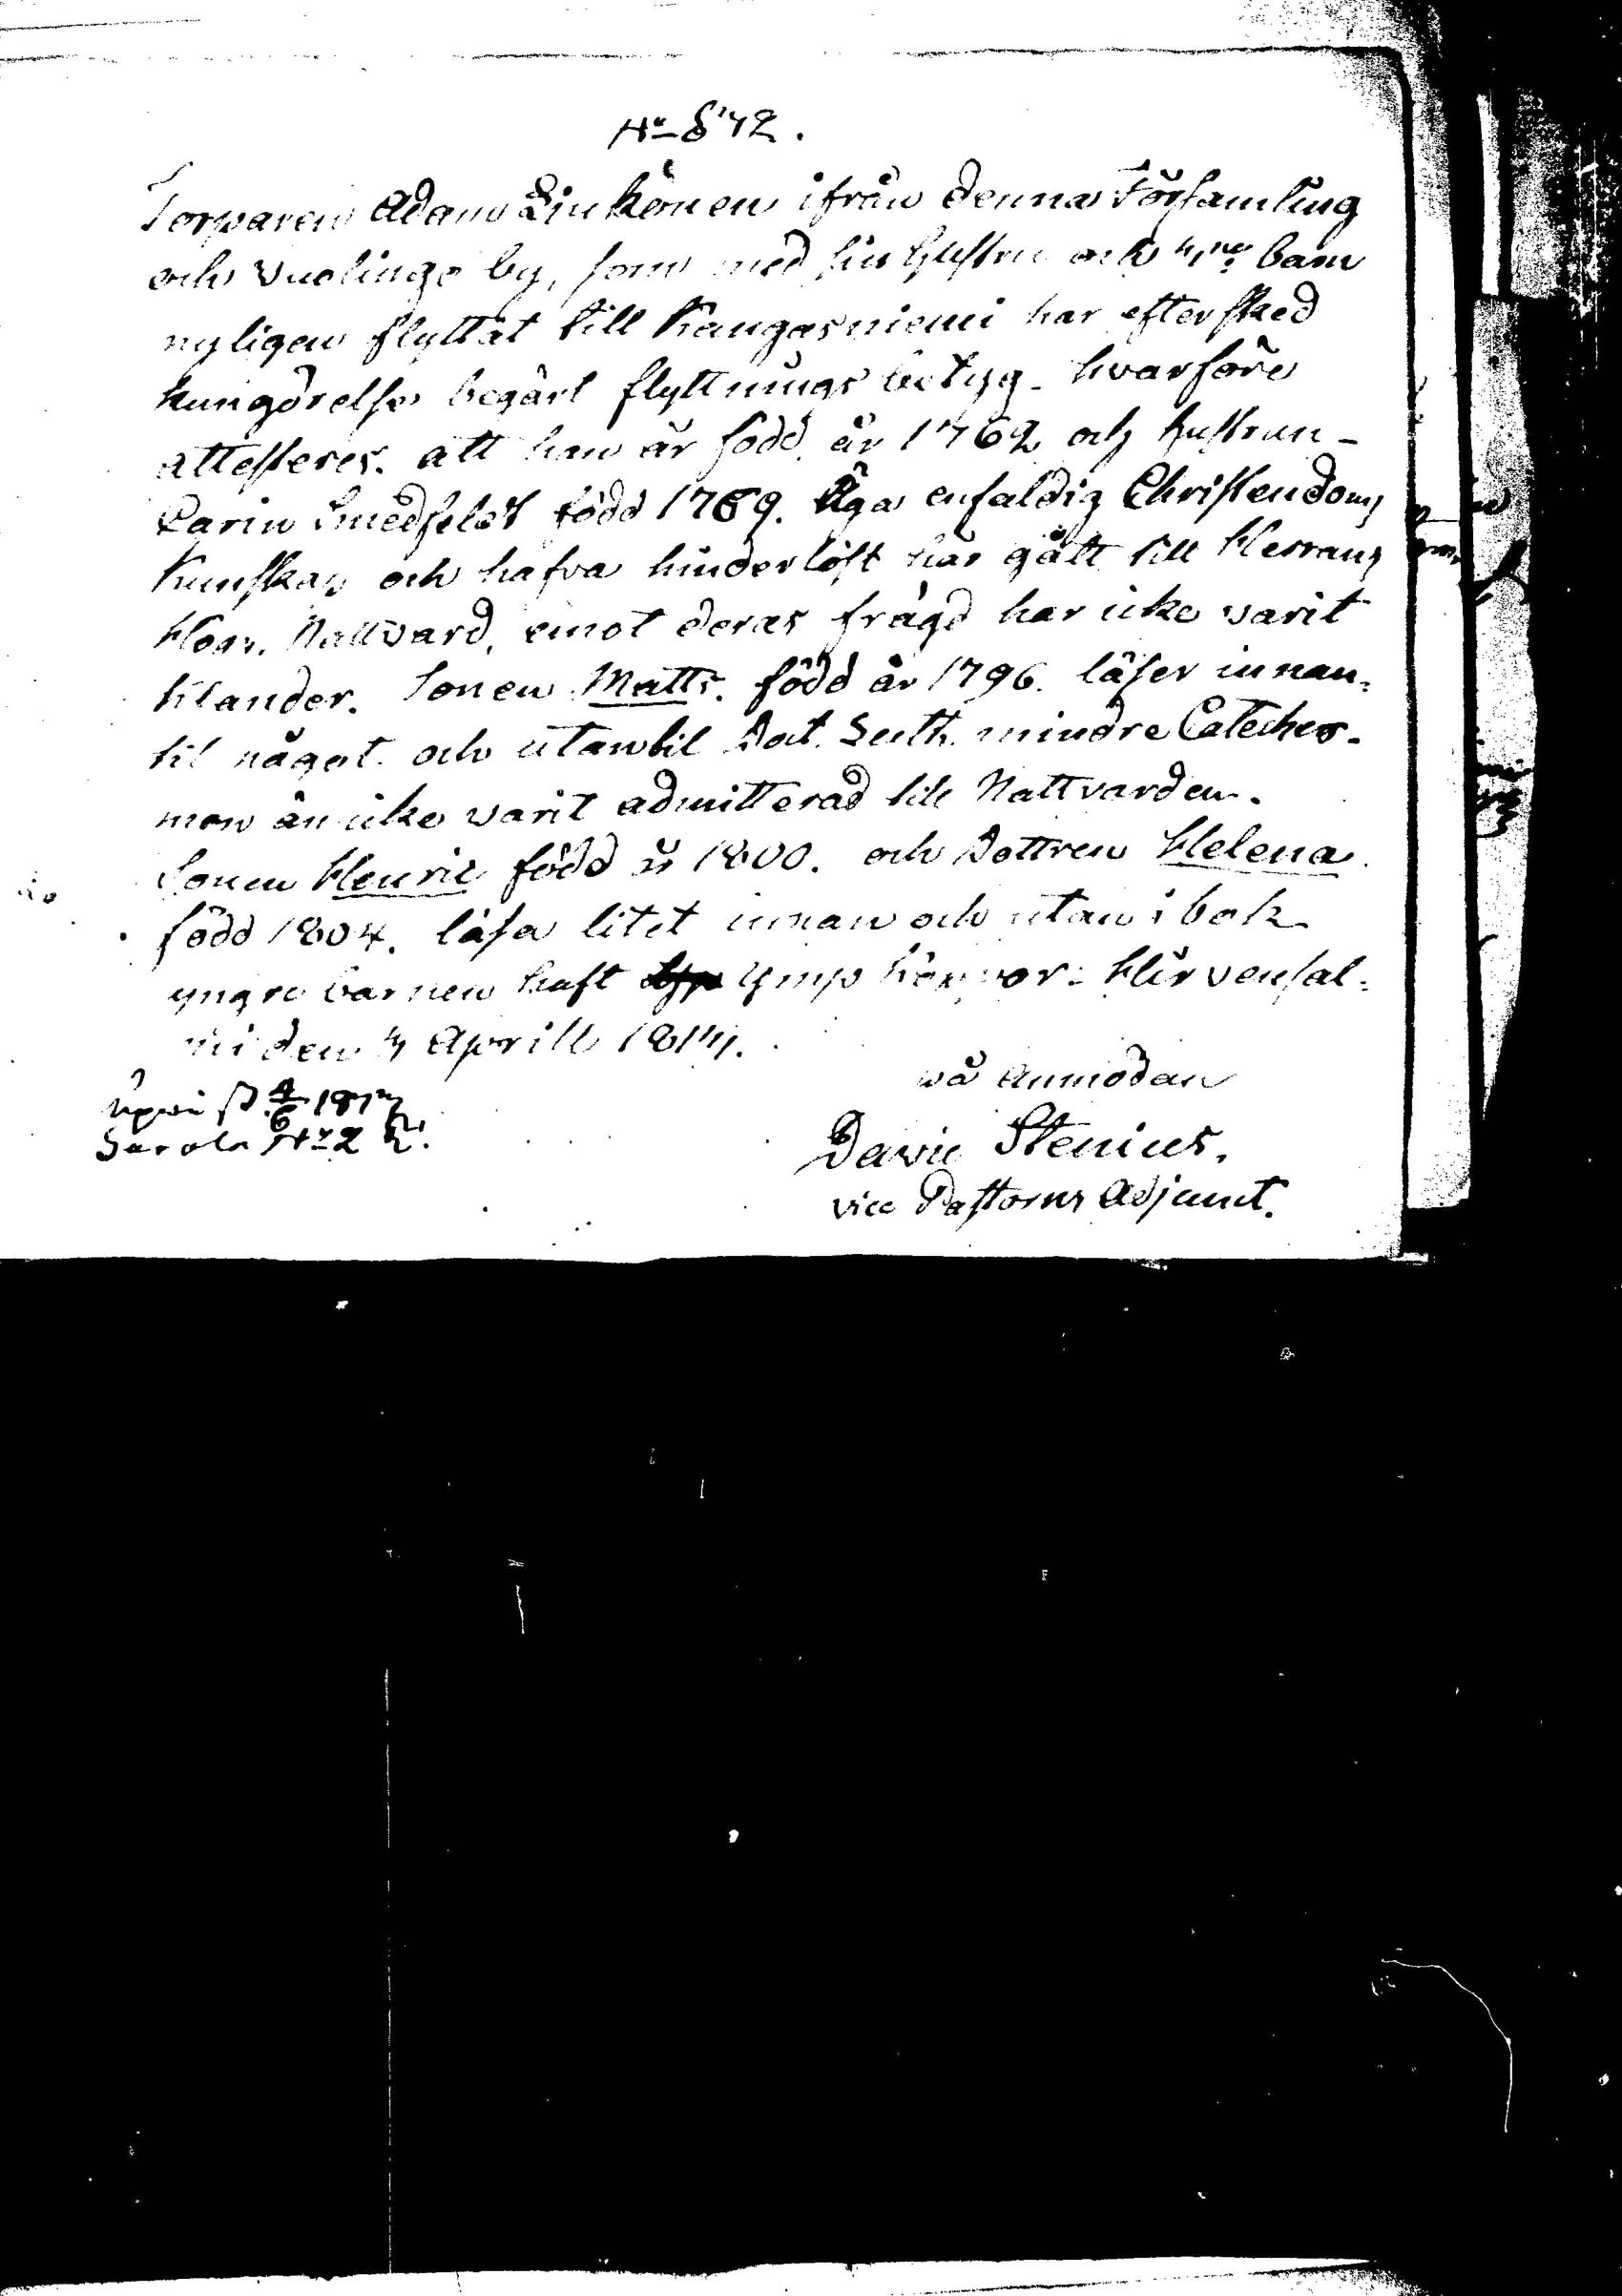 No 842.
Torparen Adam Liukonen ifrån denna Församling
och Vuolingo by, som med sin hustru och barn
nyligen flyttat till Kangasniemi har efter sked
kungörelse begärt flyttnings betyg. hvarföre
attesteres. att han är född år 1762 och hustrun
Carin Smedfelet född 1769. Äga enfaldig Christendoms
kunskap och hafva hinderlöst här gått till Herrans
Högv. Nattvard, emot deras frägd har icke varit
klander. Sonen Matts. född år 1796. läser innan-
til något och utantil Doct. Luth. mindre Cateches-
mon än icke varit admitterad till Nattvarden.
Sonen Henric född år 1800. och Dottren Helena
född 1804. läsa litet innan och utan i bok
yngre barnen haft ymp koppor. Hirvensal-
mi den Aprill
på anmodan
Davic Stenius.
vice Pastorns Adjunct.
Uppvist 4/6
No 2